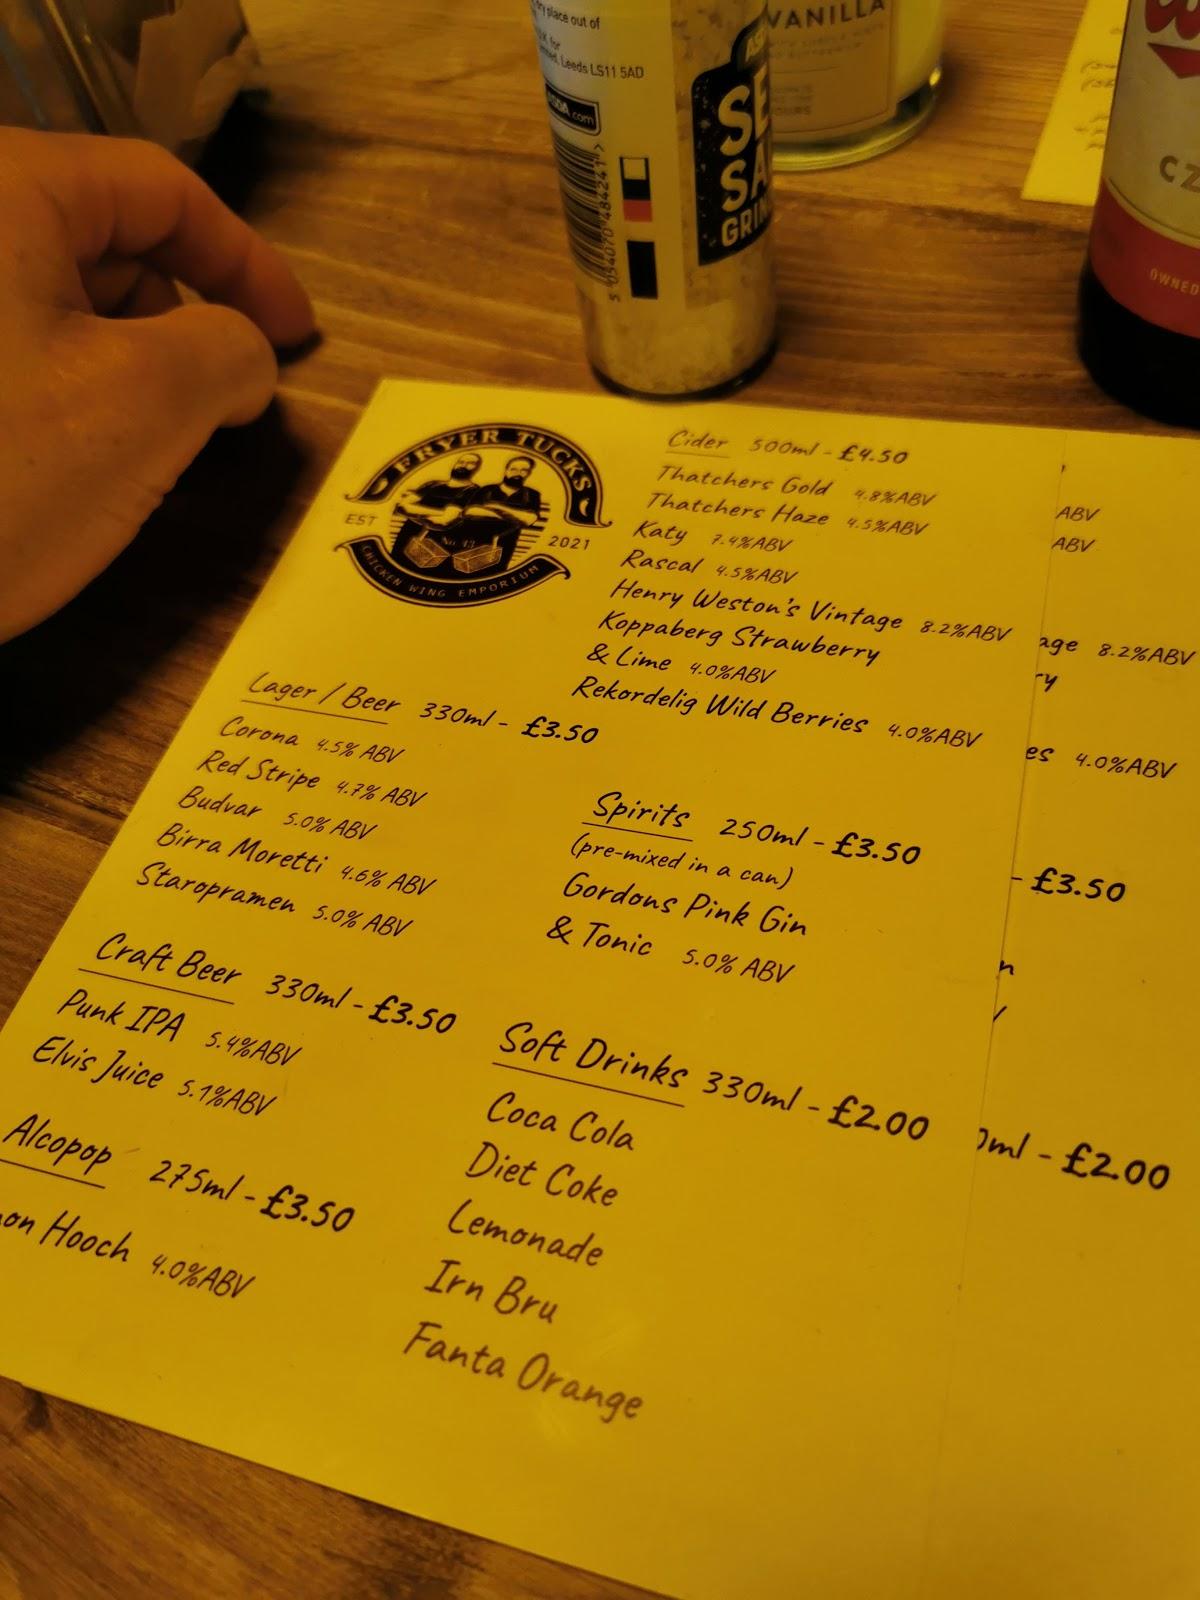 ry place out of
Leeds LS11 5AD
.com
5 054070 484241 >
VANILLA
CZ
OWNED
FRYER TUCKS
EST
No. 43
2021
CHICKEN WING EMPORIUM
Cider 500ml - £4.50
Thatchers Gold 4.8%ABV
Thatchers Haze 4.5%ABV
Katy 7.4%ABV
Rascal 4.5%ABV
Henry Weston's Vintage 8.2%ABV
Koppaberg Strawberry
& Lime 4.0%ABV
Rekordelig Wild Berries 4.0%ABV
Lager / Beer 330ml - £3.50
Corona 4.5% ABV
Red Stripe 4.7% ABV
Budvar 5.0% ABV
Birra Moretti 4.6% ABV
Staropramen 5.0% ABV
Craft Beer 330ml - £3.50
Punk IPA 5.4%ABV
Elvis Juice 5.1%ABV
Alcopop 275ml - £3.50
on Hooch 4.0%ABV
Spirits 250ml - £3.50
(pre-mixed in a can)
Gordons Pink Gin
& Tonic 5.0% ABV
Soft Drinks 330ml - £2.00
Coca Cola
Diet Coke
Lemonade
Irn Bru
Fanta Orange
ABV
ABV
age 8.2%ABV
ry
es 4.0%ABV
- £3.50
n
ml - £2.00